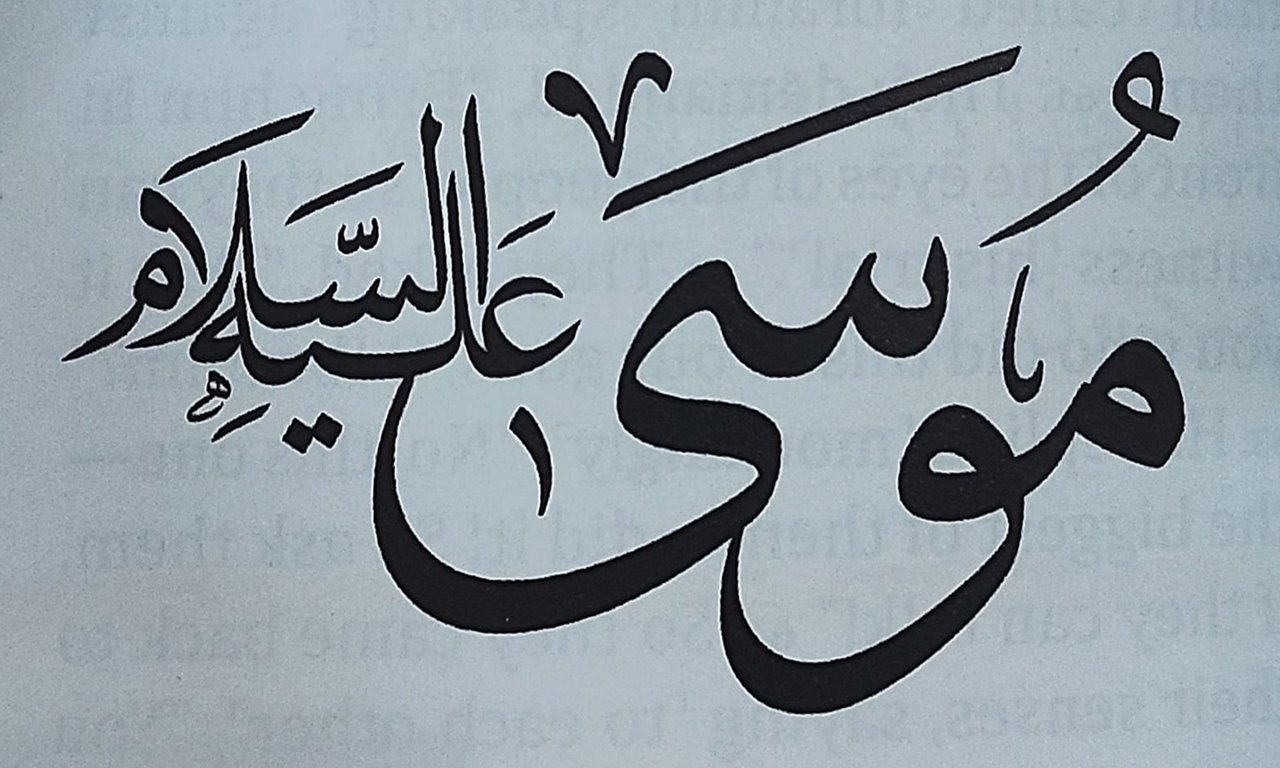 مُوسَى عَلَيْهِ السَّلَام